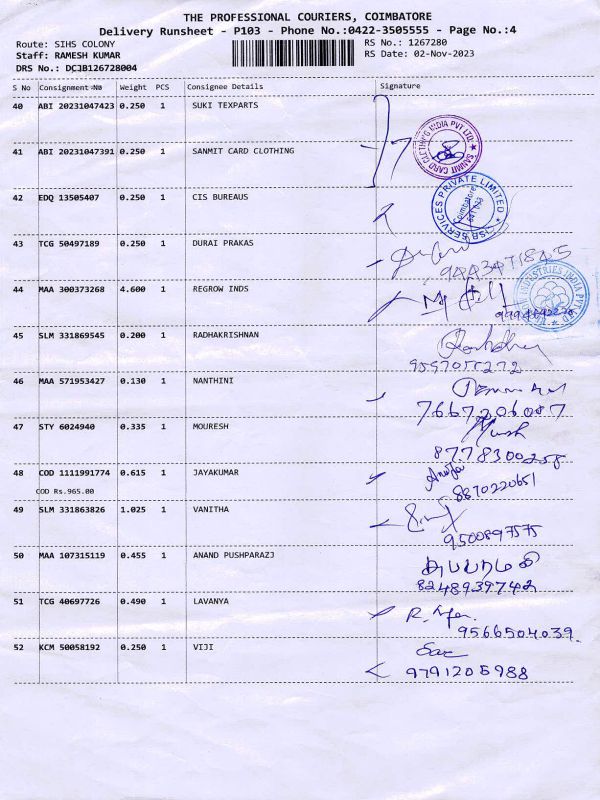 THE PROFESSIONAL COURIERS, COIMBATORE
Delivery Runsheet - P103 - Phone No.:0422-3505555 - Page No.:4
Route: SIHS COLONY
RS No.: 1267280
Staff: RAMESH KUMAR
RS Date: 02-Nov-2023
DRS No.: DCJB126728004
S No Consignment No Weight PCS Consignee Details Signature
40 ABI 20231047423 0.250 1 SUKI TEXPARTS
41 ABI 20231047391 0.250 1 SANMIT CARD CLOTHING
SANMIT CARD CLOTHING INDIA PVT LTD.
42 EDQ 13505407 0.250 1 CIS BUREAUS
SERVICES PRIVATE LIMITED
Coimbatore
43 TCG 50497189 0.250 1 DURAI PRAKAS
9443471845
44 MAA 300373268 4.600 1 REGROW INDS
INDUSTRIES INDIA PVT LTD
45 SLM 331869545 0.200 1 RADHAKRISHNAN
46 MAA 571953427 0.130 1 NANTHINI
7667206087
47 STY 6024940 0.335 1 MOURESH
8778300258
48 COD 1111991774 0.615 1 JAYAKUMAR
COD Rs.965.00
8870220651
49 SLM 331863826 1.025 1 VANITHA
9500897575
50 MAA 107315119 0.455 1 ANAND PUSHPARAZJ
8248939742
51 TCG 40697726 0.490 1 LAVANYA
9566504039.
52 KCM 50058192 0.250 1 VIJI
9791205988